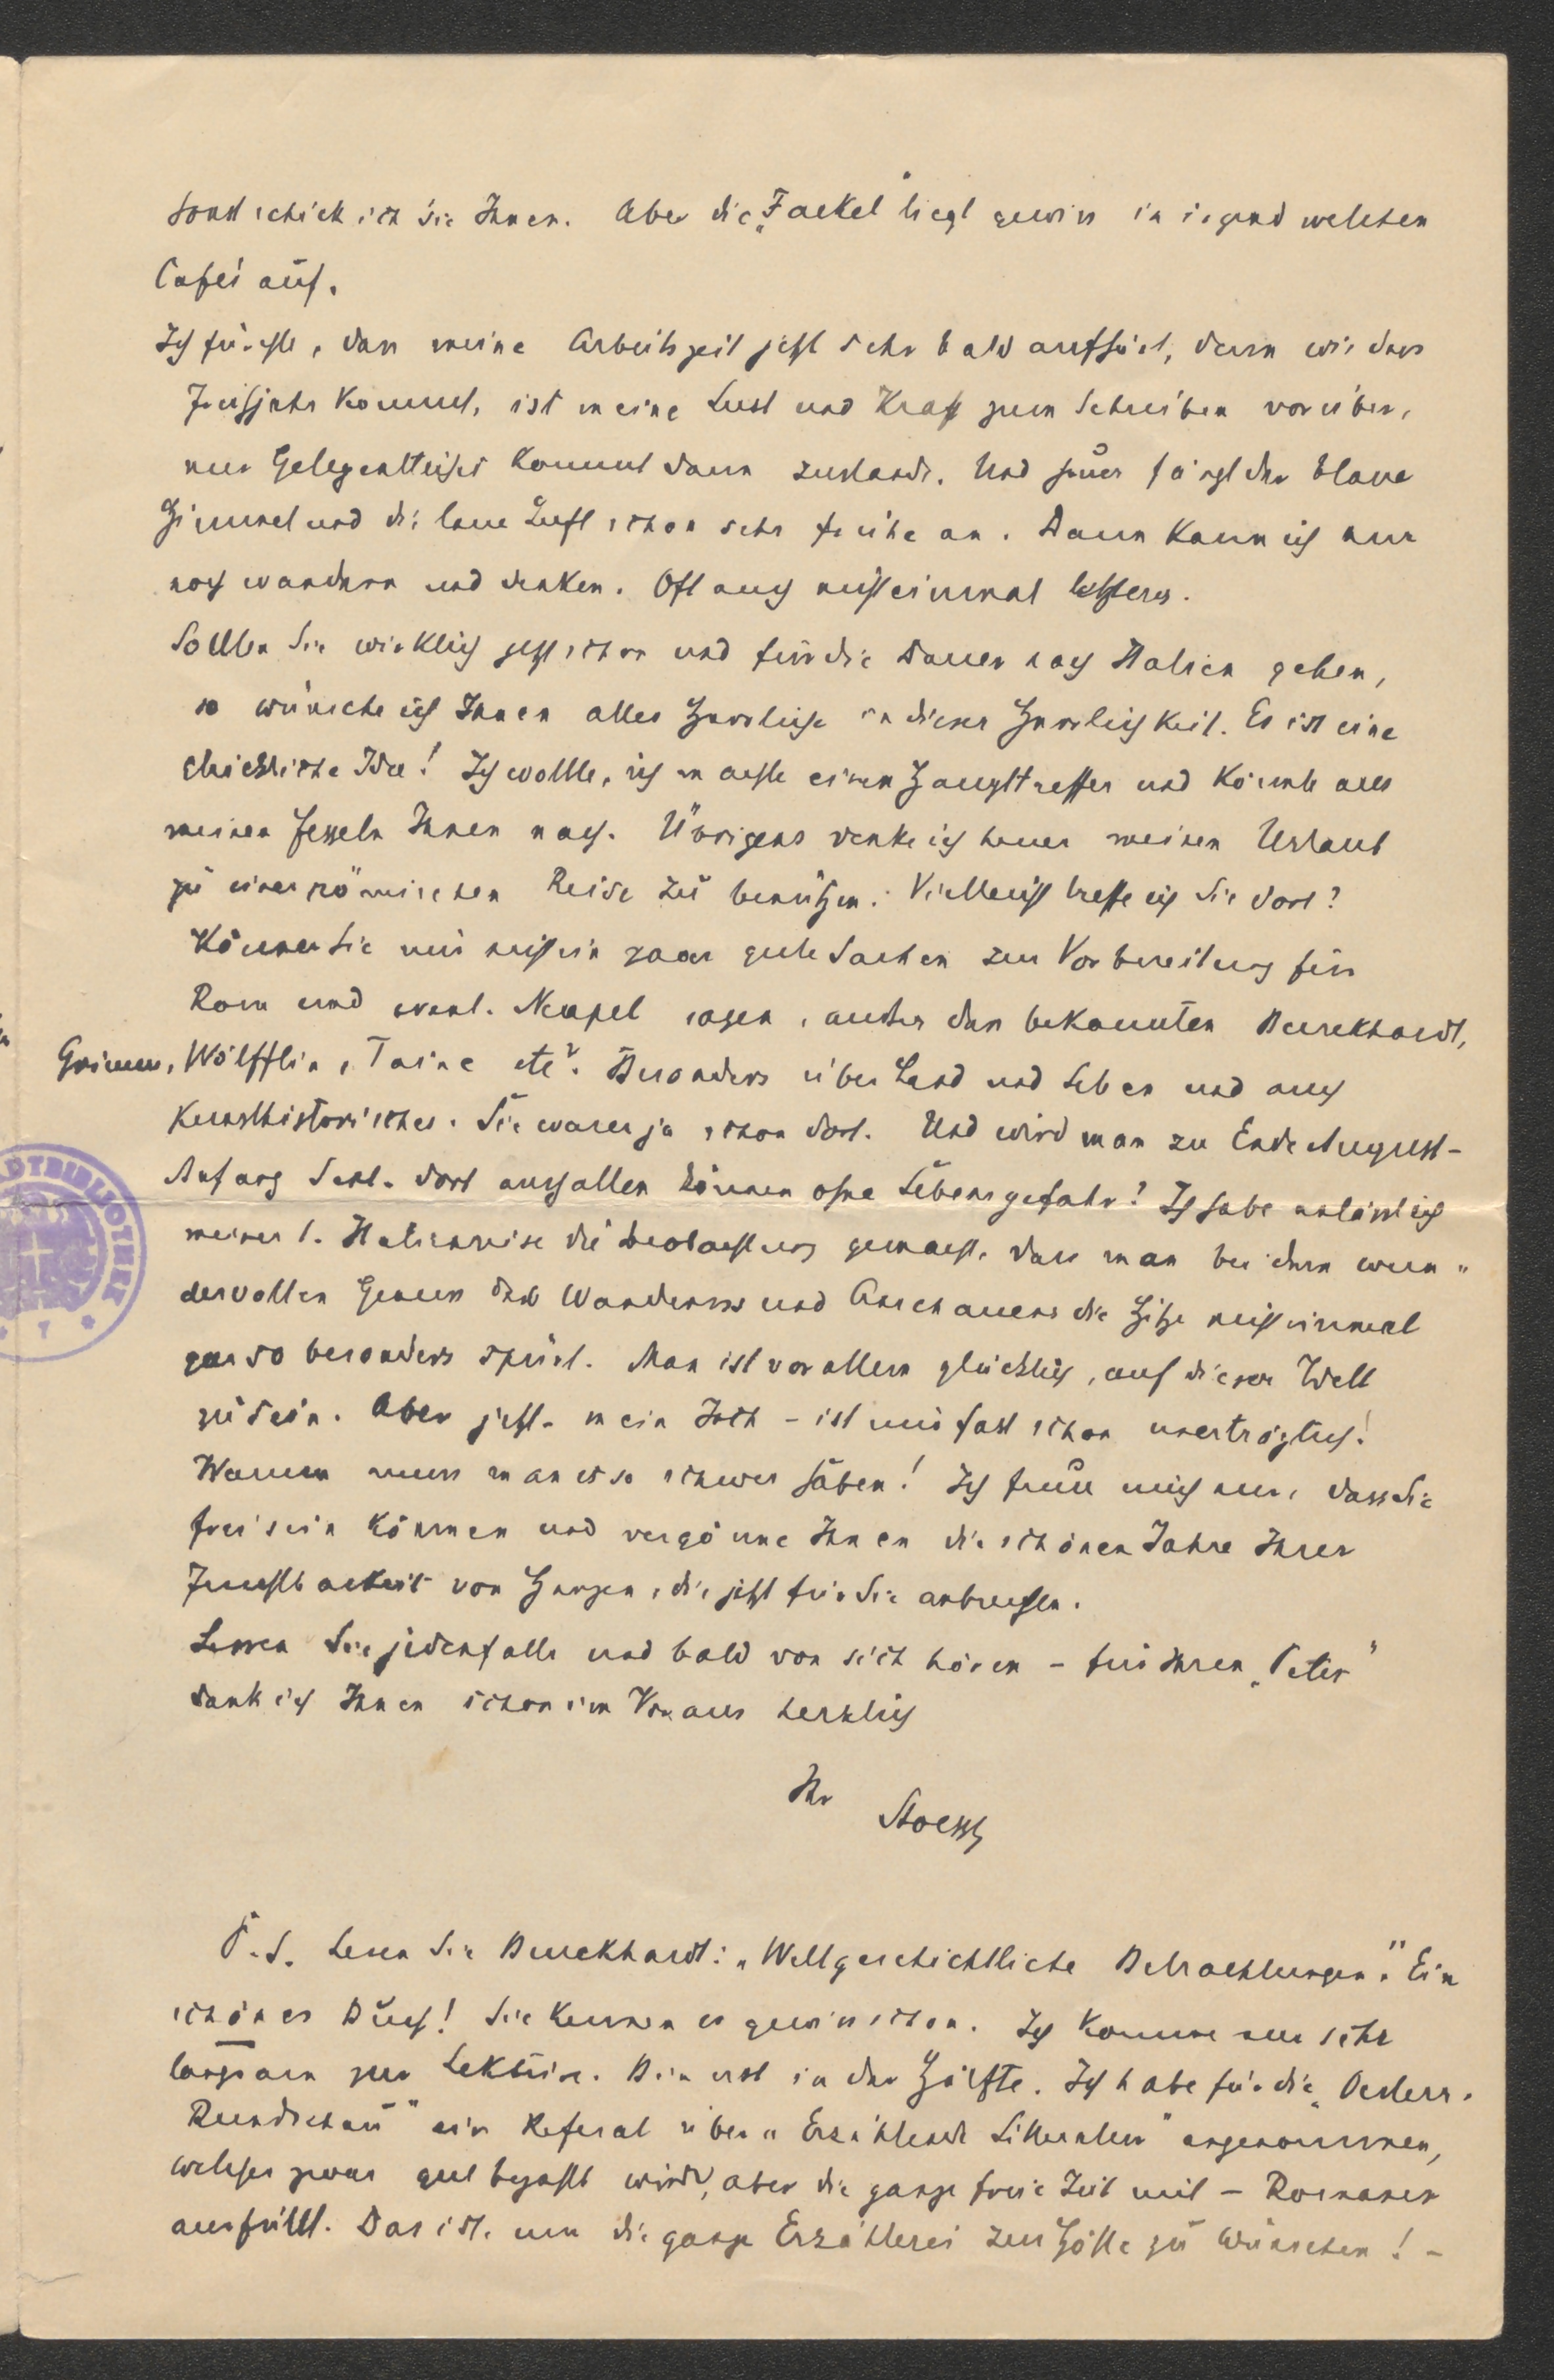 sonst schick ich sie Ihnen. Aber die „Fackel" liegt gewiss in irgend welchen
Cafés auf.
Ich fürchte, dass meine Arbeitszeit jetzt sehr bald aufhört, denn wie das
Frühjahr kommt, ist meine Lust und Kraft zum Schreiben vorüber,
nur Gelegentliches kommt dann zustande. Und heuer fängt der blaue
Himmel und die laue Luft schon sehr frühe an. Dann kann ich nur
noch wandern und denken. Oft auch nicht einmal letzteres.
Sollten Sie wirklich jetzt schon und für die Dauer nach Italien gehen,
so wünsche ich Ihnen alles Herrliche in dieser Herrlichkeit. Es ist eine
glückliche Idee! Ich wollte, ich machte einen Haupttreffer und könnte aus
meinen Fesseln Ihnen nach. Übrigens denke ich heuer meinen Urlaub
zu einer römischen Reise zu benützen. Vielleicht treffe ich Sie dort?
Können Sie mir nicht ein paar gute Sachen zur Vorbereitung für
Rom und event. Neapel sagen, außer den bekannten Burckhardt,
Grimm, Wölfflin, Taine etc? Besonders über Land und Leben und auch
Kunsthistorisches. Sie waren ja schon dort. Und wird man zu Ende August-
Anfang Sept. dort aushalten können ohne Lebensgefahr? Ich habe anlässlich
meiner 1. Italienreise die Beobachtung gemacht, dass man bei dem wun-
dervollen Genuss des Wanderns und Anschauens die Hitze nicht einmal
gar so besonders spürt. Man ist vor allem glücklich, auf dieser Welt
zu sein. Aber jetzt - mein Joch - ist mir fast schon unerträglich!
Warum muss man es so schwer haben! Ich freue mich nur, dass Sie
frei sein können und vergönne Ihnen die schönen Jahre Ihrer
Fruchtbarkeit von Herzen, die jetzt für Sie anbrechen.
Lassen Sie jedenfalls und bald von sich hören - für Ihren „Peter"
dank ich Ihnen schon im Voraus herzlich
Ihr
Stoessl
P.S. Lesen Sie Burckhardt: „Weltgeschichtliche Betrachtungen." Ein
schönes Buch! Sie kennen es gewiss schon. Ich komme nur sehr
langsam zur Lektüre. Bin erst in der Hälfte. Ich habe für die „Oesterr.
Rundschau" ein Referat über „Erzählende Litteratur" angenommen,
welches zwar gut bezahlt wird, aber die ganze freie Zeit mit - Romanen
ausfüllt. Das ist, um die ganze Erzählerei zur Hölle zu wünschen! -